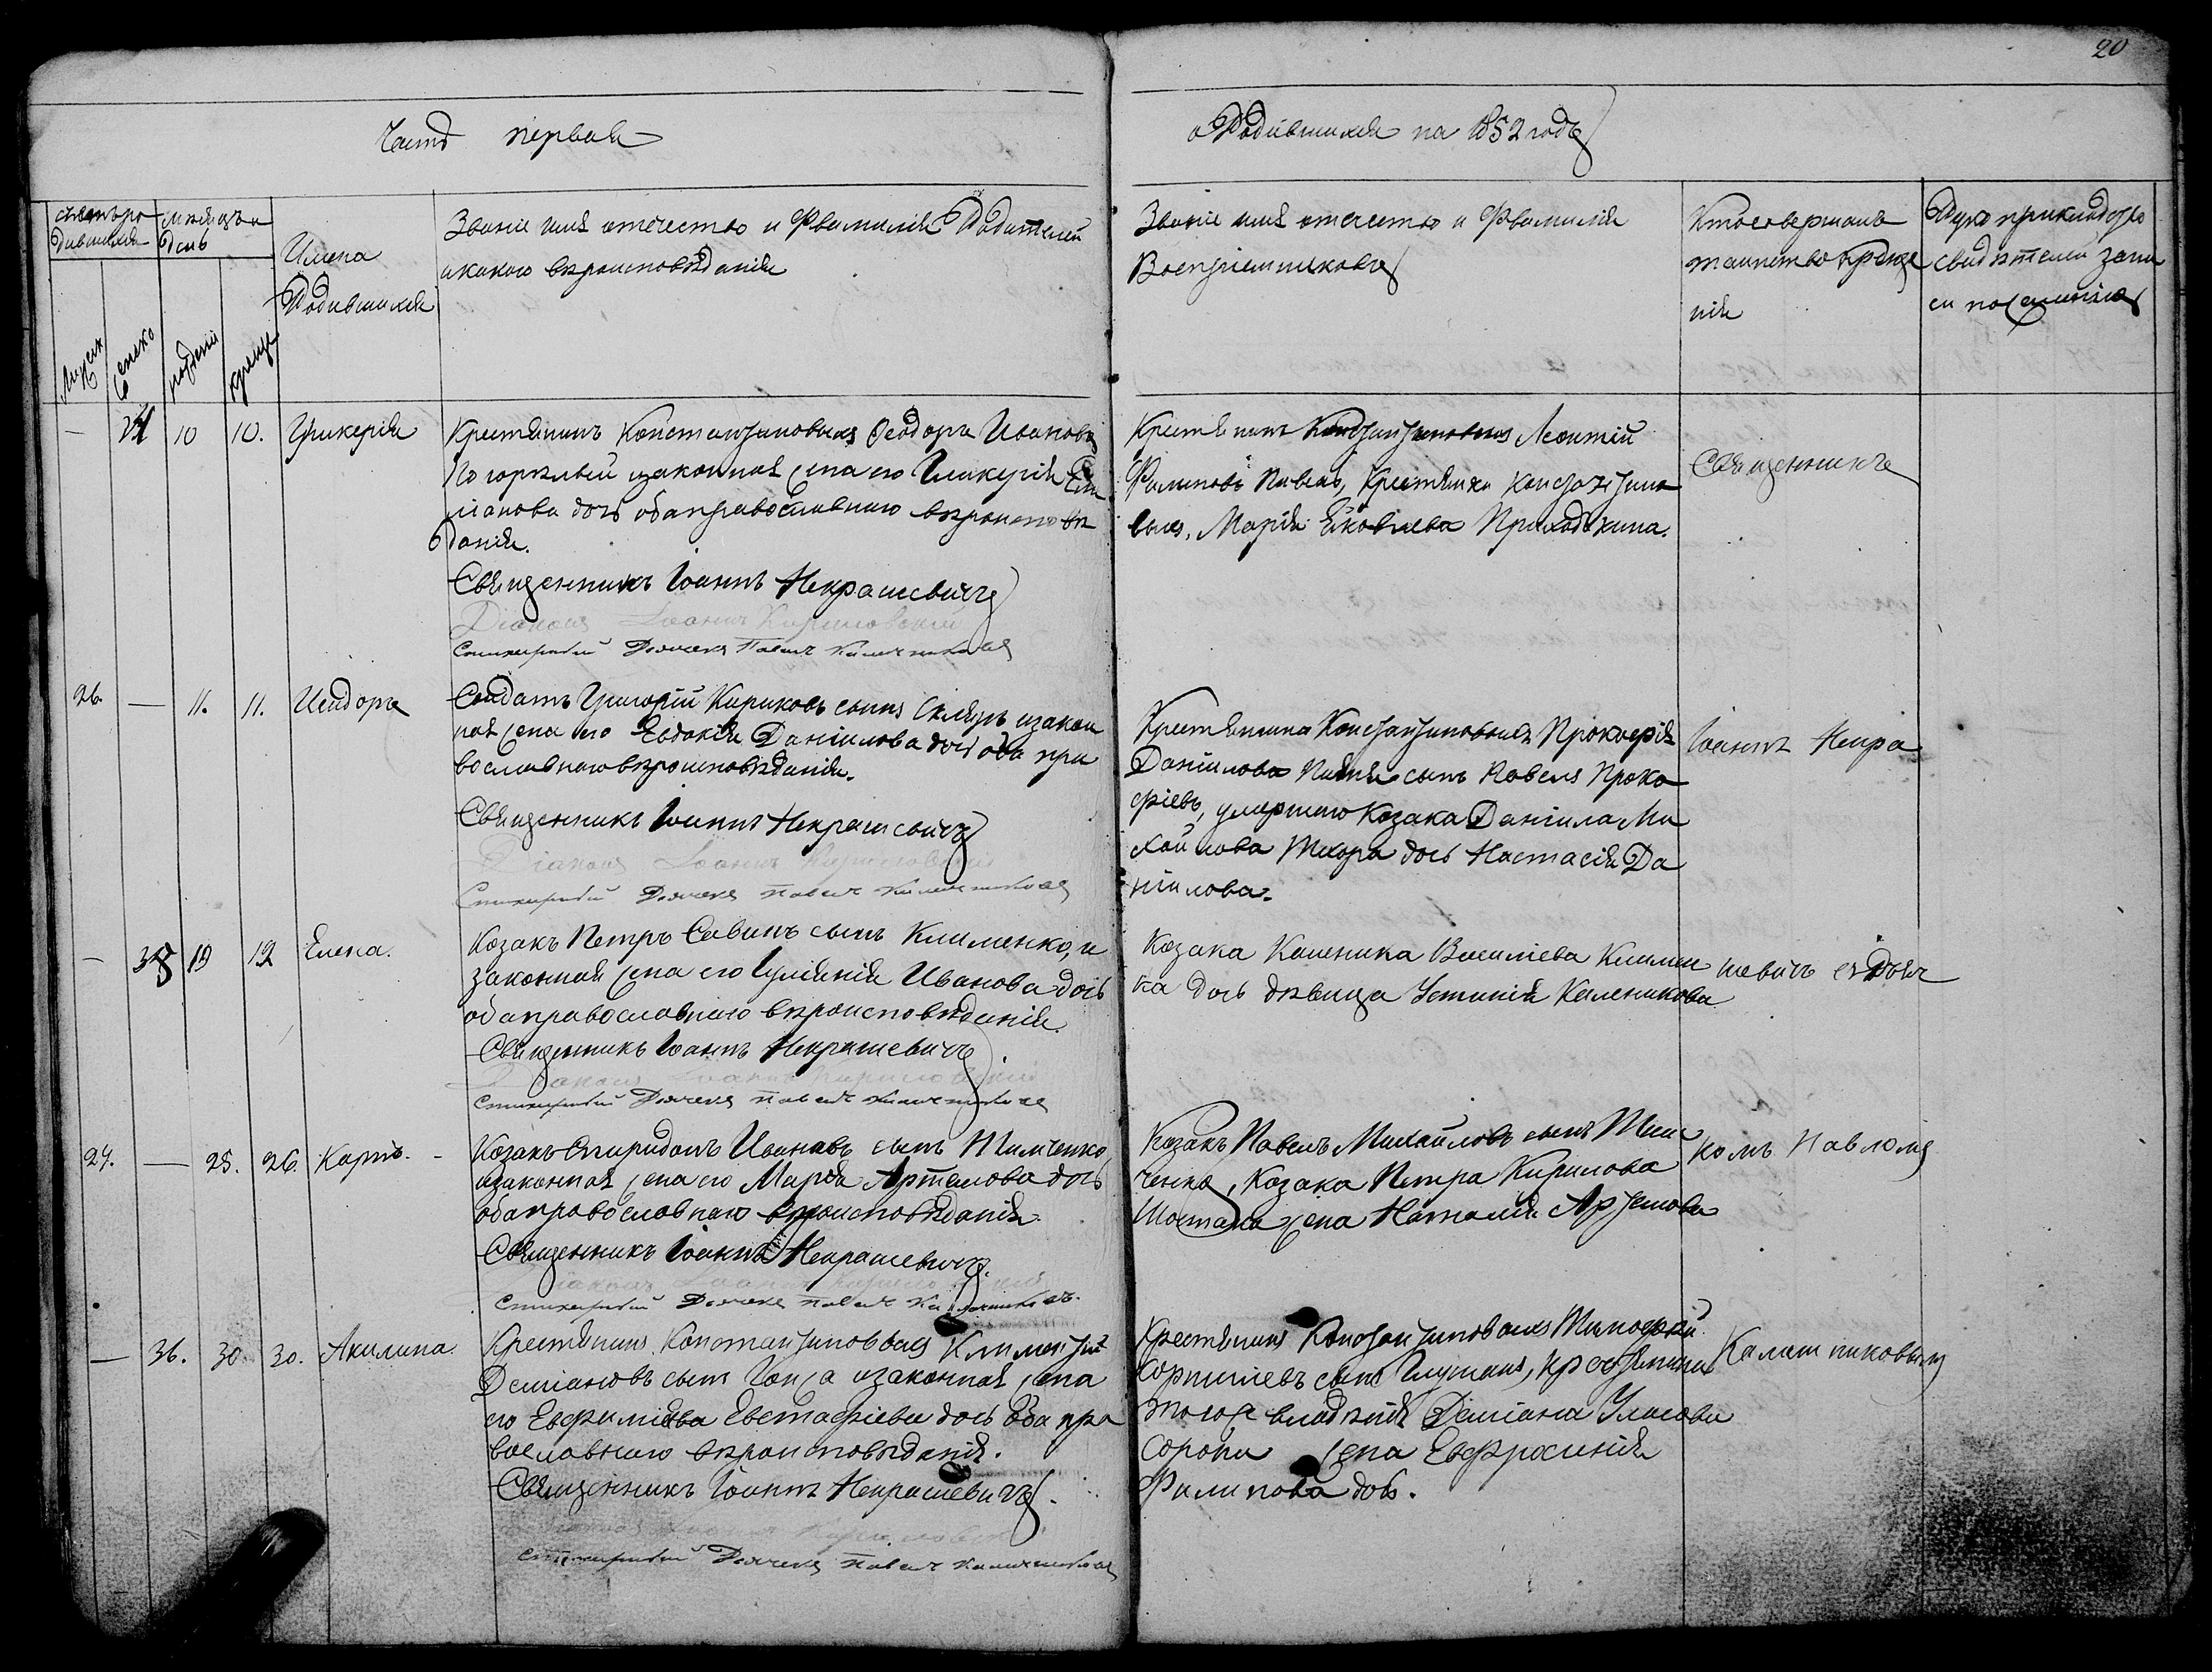 20
Часть первая
о Родившихся на 1852 годъ
Имена
Родившихся
Званіе имя отечество и Фвамилія Родителей
и какого вѣроисповѣданія
Званіе имя отечество и Фвамилія
Воспріемниковъ
Кто совершалъ
таинство креще
нія
— 10 10. Гликерія
Крестянинъ Константиновыхъ Феодоръ Ивановъ
Погорѣлый изаконная жена его Гликерія Еми
ліанова дочь оба православнаго вѣроисповѣ
данія.
Священникъ Іоаннъ Некрашевичъ
Діаконъ Іоаннъ Кириловскій
Стихарный Дьячекъ Павелъ Калашниковъ
Крестянинъ Константиновыхъ Леонтій
Филиповъ Пивень, Крестянка Константино
выхъ, Марія Яковлева Приходькина.
Священникъ
26. — 11. 11. Исидоръ
Солдатъ Григорій Кириковъ сынъ Скляръ изакон
ная жена его Евдокія Даніилова дочь оба пра
вославнаго вѣроисповѣданія.
Священникъ Іоаннъ Некрашевичъ
Діаконъ Іоаннъ Кириловскій
Стихарный Дьячекъ Павелъ Калашниковъ
Крестянина Константиновыхъ Прокофія
Даніилова сынъ Павелъ Проко
фіевъ, умершаго Козака Даніила Ми
хайлова Тхора дочь Настасія Да
ніилова.
Іоаннъ Некра
— 35 19 19 Елена.
Козакъ Петръ Савинъ сынъ Клименко, и
законная жена его Гуліянія Иванова дочь
оба православнаго вѣроисповѣданія.
Священникъ Іоаннъ Некрашевичъ
Діаконъ Іоаннъ Кириловскій
Стихарный Дьячекъ Павелъ Калашниковъ
Козака Каленика Василіева Климен
ка дочь дѣвица Устинія Каленикова
шевичъ съ Дьяч
27. — 25. 26. Карпъ.
Козакъ Спиридонъ Ивановъ сынъ Тимченко
изаконная жена его Марія Артемова дочь
оба православнаго вѣроисповѣданія
Священникъ Іоаннъ Некрашевичъ.
Діаконъ Іоаннъ Кириловскій
Стихарный Дьячекъ Павелъ Калашниковъ.
Козакъ Павелъ Михайловъ сынъ Тим
ченко, Козака Петра Кирилова
Шостака жена Наталія Артемова
комъ Павломъ
— 36. 30. 30. Акилина.
Крестянинъ Константиновыхъ Климентій
Деміановъ сынъ изаконная жена
его Евфимія Евстафіева дочь оба пра
вославнаго вѣроисповѣданія.
Священникъ Іоаннъ Некрашевичъ.
Стихарный Дьячекъ Павелъ Калашниковъ
Крестянинъ Константиновыхъ Тимофей
Корниліевъ сынъ Крестянина
тогоже владѣнія Деміана Уласова
Сороки жена Евфросинія
Филипова дочь.
Калашниковымъ